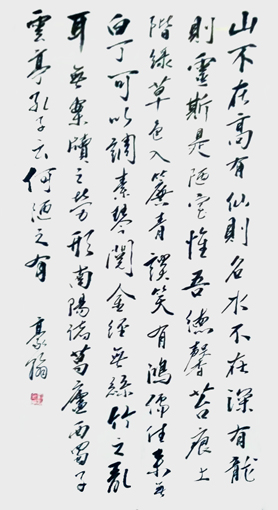 山不在高有仙則名水不在深有龍
則靈斯是陋室惟吾德馨苔痕上
階綠草色入簾青談笑有鴻儒往來無
白丁可以調素琴閱金經無絲竹之亂
耳無案牘之勞形南陽諸葛廬西蜀子
雲亭孔子云何陋之有